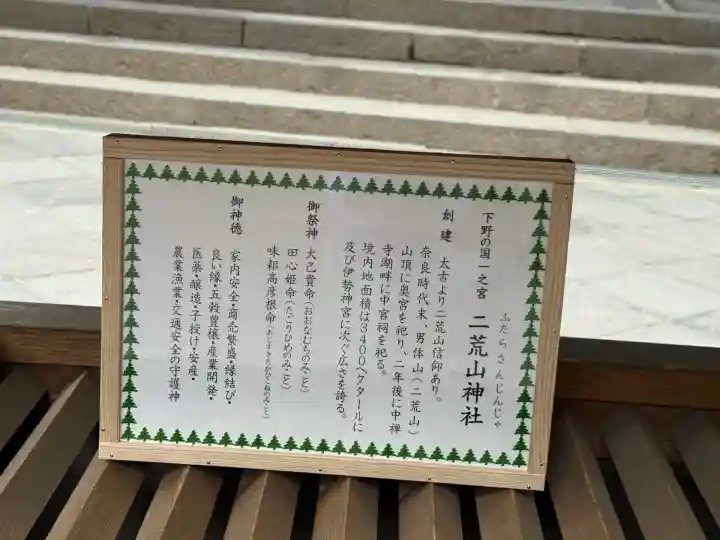 下野の国一之宮 二荒山神社
ふたらさんじんじゃ
創建 太古より二荒山信仰あり。
奈良時代末、男体山(二荒山)
山頂に奥宮を祀り、二年後に中禅
寺湖畔に中宮祠を祀る。
境内地面積は3400ヘクタールに
及び伊勢神宮に次ぐ広さを誇る。
御祭神 大己貴命(おおなむちのみこと)
田心姫命(たごりひめのみこと)
味耜高彦根命(あじすきたかひこねのみこと)
御神徳 家内安全・商売繁盛・縁結び・
良い縁・五穀豊穣・産業開発・
医薬・醸造・子授け・安産・
農業漁業・交通安全の守護神